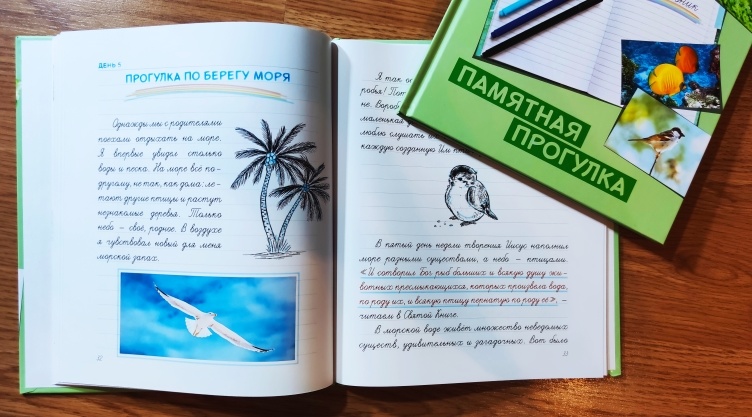 ДЕНЬ 5
ПРОГУЛКА ПО БЕРЕГУ МОРЯ
Однажды мы с родителями
поехали отдыхать на море.
Я впервые увидел столько
воды и песка. На море всё по-
другому, не так, как дома: ле-
тают другие птицы и растут
незнакомые деревья. Только
небо – своё, родное. В воздухе
я чувствовал новый для меня
морской запах.
Я так
робья! Пот
не. Вороб
маленькая
люблю слушать
каждую созданную Им
В пятый день недели творения Иисус наполнил
море разными существами, а небо – птицами.
«И сотворил Бог рыб больших и всякую душу жи-
вотных пресмыкающихся, которых произвела вода,
по роду их, и всякую птицу пернатую по роду ее», –
читаем в Святой Книге.
В морской воде живёт множество неведомых
существ, удивительных и загадочных. Вот было
33
ПАМЯТНАЯ
ПРОГУЛКА